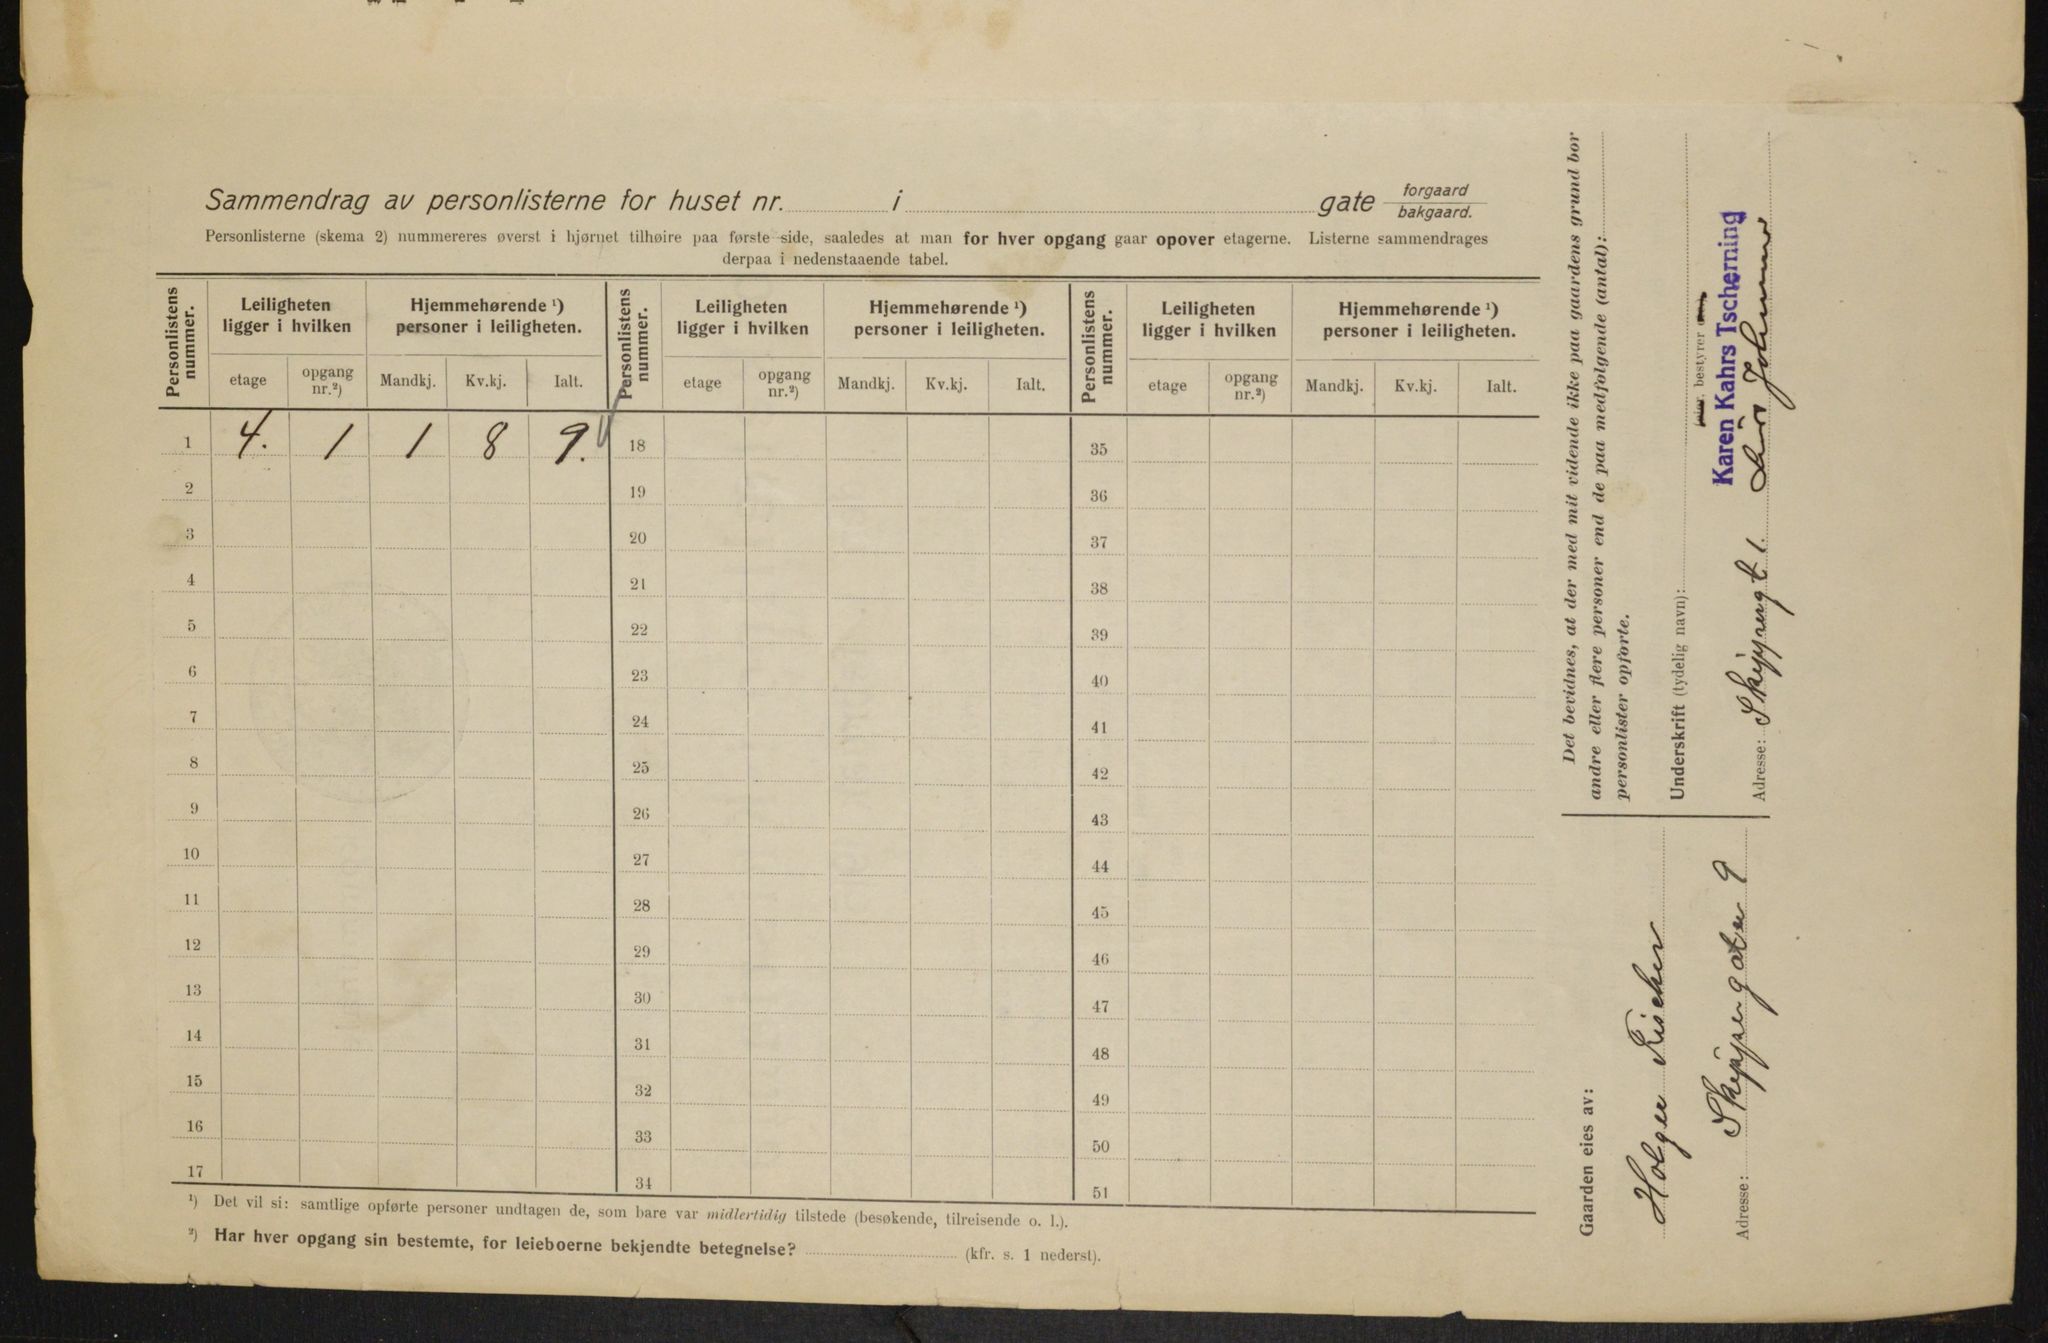 Sammendrag av personlisterne for huset nr. i gate forgaard bakgaard.
Personlisterne (skema 2) nummereres øverst i hjørnet tilhøire paa første side, saaledes at man for hver opgang gaar opover etagerne. Listerne sammendrages
derpaa i nedenstaaende tabel.
Personlistens nummer. Leiligheten ligger i hvilken Hjemmehørende ¹) personer i leiligheten. Personlistens nummer. Leiligheten ligger i hvilken Hjemmehørende ¹) personer i leiligheten. Personlistens nummer. Leiligheten ligger i hvilken Hjemmehørende ¹) personer i leiligheten.
etage opgang nr.²) Mandkj. Kv.kj. Ialt. etage opgang nr.²) Mandkj. Kv.kj. Ialt. etage opgang nr.²) Mandkj. Kv.kj. Ialt.
1 4. 1 1 8 9. 18 35
2 19 36
3 20 37
4 21 38
5 22 39
6 23 40
7 24 41
8 25 42
9 26 43
10 27 44
11 28 45
12 29 46
13 30 47
14 31 48
15 32 49
16 33 50
17 34 51
¹) Det vil si: samtlige opførte personer undtagen de, som bare var midlertidig tilstede (besøkende, tilreisende o. l.).
²) Har hver opgang sin bestemte, for leieboerne bekjendte betegnelse? (kfr. s. 1 nederst).
Gaarden eies av:
Holger Fischer
Skippergaten 9
Adresse:
Det bevidnes, at der med mit vidende ikke paa gaardens grund bor
andre eller flere personer end de paa medfolgende (antal):
personlister opforte.
Underskrift (tydelig navn): bestyrer
Karen Kahrs Tscherning
Adresse: Skippergt 1.